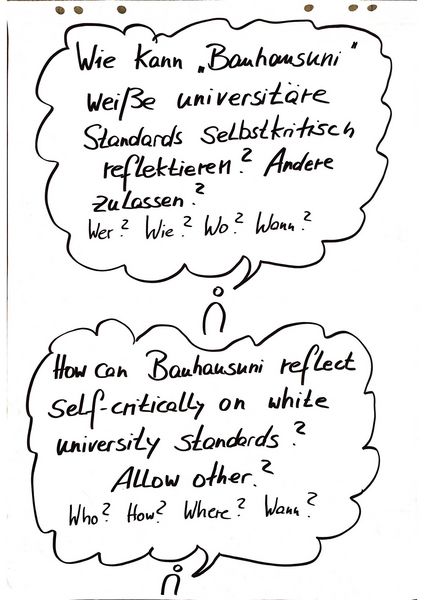 Wie kann „Bauhausuni"
weiße universitäre
Standards selbstkritisch
reflektieren? Andere
zulassen?
Wer? Wie? Wo? Wann?
How can Bauhausuni reflect
self-critically on white
university standards?
Allow other?
Who? How? Where? Wann?